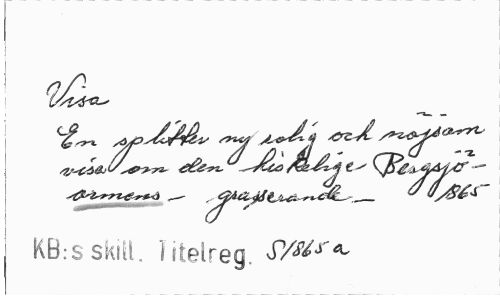 Visa
En splitter ny rolig och nöjsam
visa om den hiskelige Bergsjö-
ormens - grasserande - 1865
KB:s skill. Titelreg. S1865a